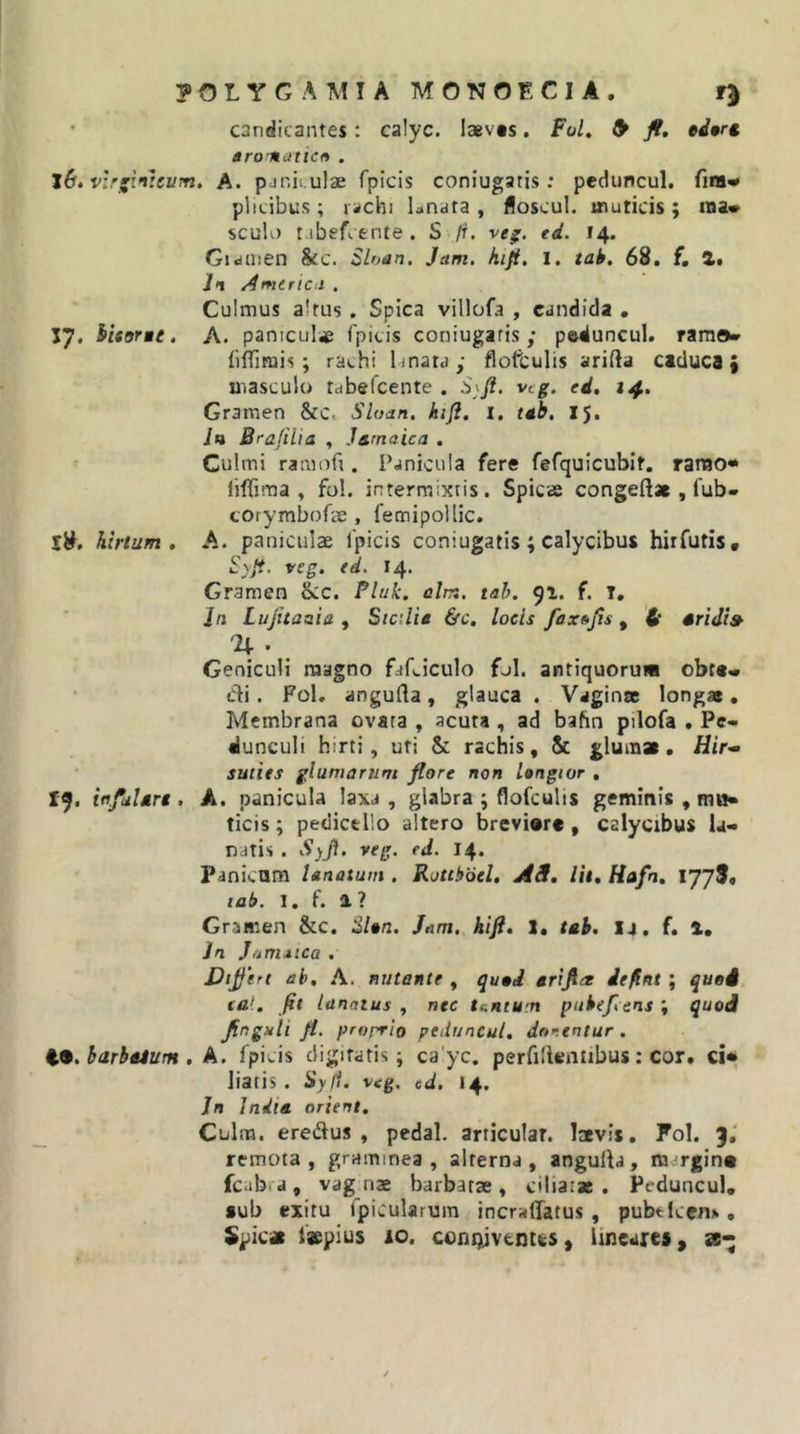 POLYGAMIA MONOECIA. 13
candicantes: calyc. læves. Fol. & fl. odore
aromatico.
16. virginicum. A. paniculæ ſpicis coniugatis: peduncul. ſim-
plicibus; rachi lanata, floscul. muticis; ma-
sculo tabeſcente. Syſt. veg. ed. 14.
Gramen &c. Sloan. Jam. hiſt. 1. tab. 68. f. 2.
In America.
Culmus altus. Spica villoſa, candida.
17. bicorne. A. paniculæ ſpicis coniugatis; peduncul. ramo-
ſiſſimis; rachi lanata; floſculis ariſta caduca;
masculo tabeſcente. Syſt. veg. ed. 14.
Gramen &c. Sloan. hiſt. 1. tab. 15.
In Braſilia, Jamaica.
Culmi ramoſi. Panicula fere ſeſquicubit. ramo-
ſiſſima, fol. intermixtis. Spicæ congeſtæ, ſub-
corymboſæ, ſemipollic.
18. hirtum. A. paniculæ ſpicis coniugatis; calycibus hirſutis.
Syſt. veg. ed. 14.
Gramen &c. Pluk. alm. tab. 92. f. 1.
In Luſitania, Sicilia &c. locis ſaxoſis, & aridis
♃.
Geniculi magno faſciculo fol. antiquorum obte-
cti. Fol. anguſta, glauca. Vaginæ longæ.
Membrana ovata, acuta, ad baſin piloſa. Pe-
dunculi hirti, uti & rachis, & glumæ. Hir-
suties glumarum flore non longior.
19. inſulare. A. panicula laxa, glabra; floſculis geminis, mu-
ticis; pedicello altero breviore, calycibus la-
natis. Syſt. veg. ed. 14.
Panicum lanatum. Rottböel. Act. lit. Hafn. 1778.
tab. 1. f. 2?
Gramen &c. Slon. Jam. hiſt. 1. tab. 14. f. 2.
In Jamaica.
Differt ab. A. nutante, quod ariſtæ deſint; quod
cal. ſit lanatus, nec tantum pubeſcens; quod
ſinguli fl. proprio peduncul. donentur.
20. barbatum. A. ſpicis digitatis; calyc. perſiſtentibus: cor. ci-
liatis. Syſt. veg. ed. 14.
In India orient.
Culm. erectus, pedal. articular. lævis. Fol. 3.
remota, graminea, alterna, anguſta, margine
ſcabra, vaginæ barbatæ, ciliatæ. Peduncul.
sub exitu ſpicularum incraſſatus, pubeſcens.
Spicæ ſæpius 10. conniventes, lineares, æ-